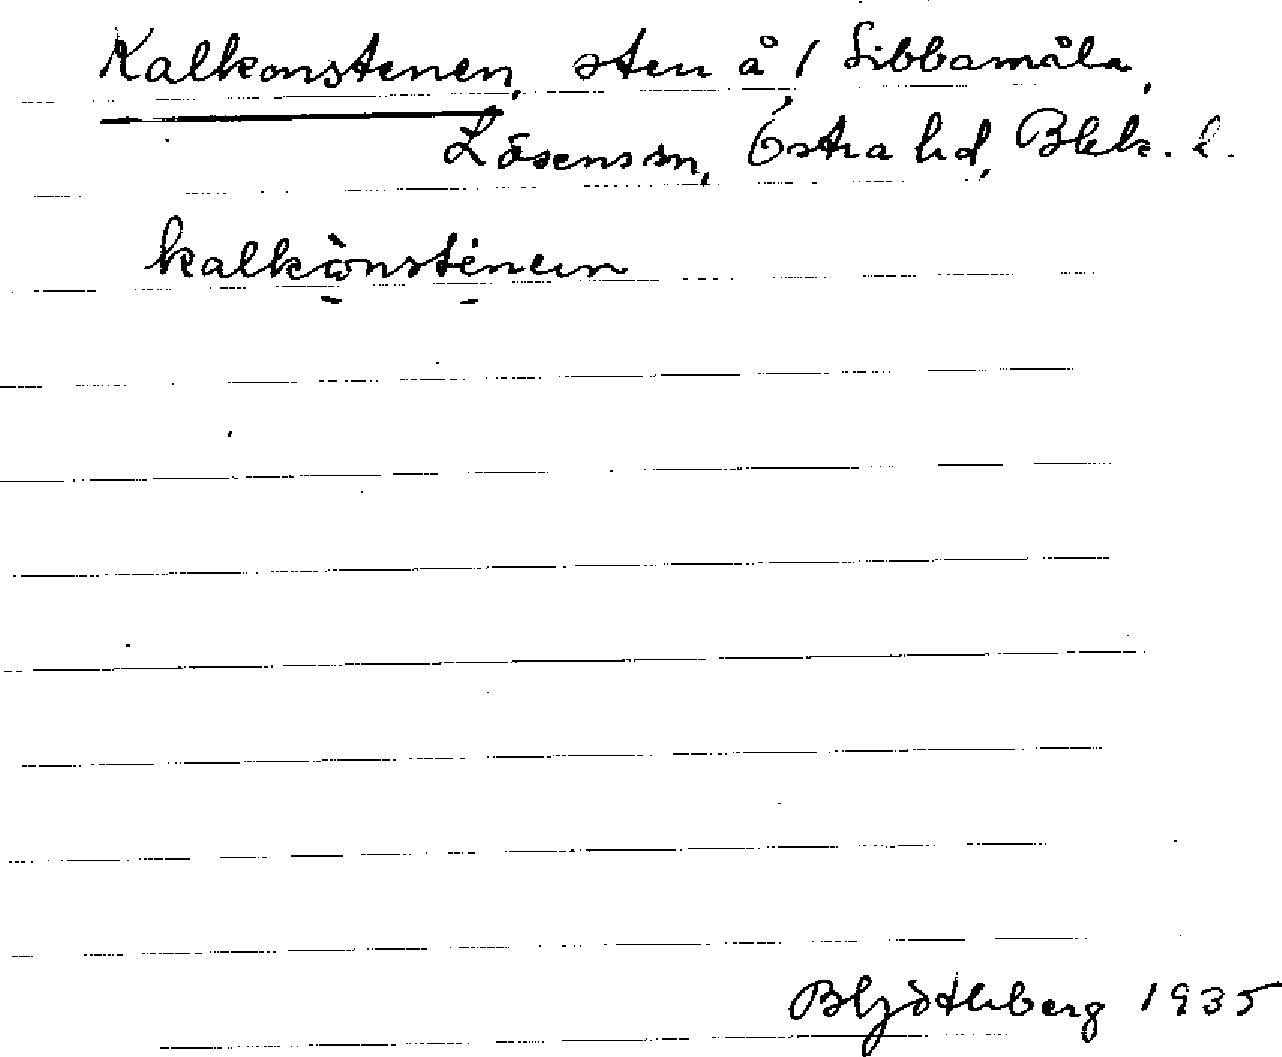 Kalkonstenen, sten å 1 Sibbamåla,
Lösens sn, Östra hd, Blek. l.
kalkònsténen
Bj 1935